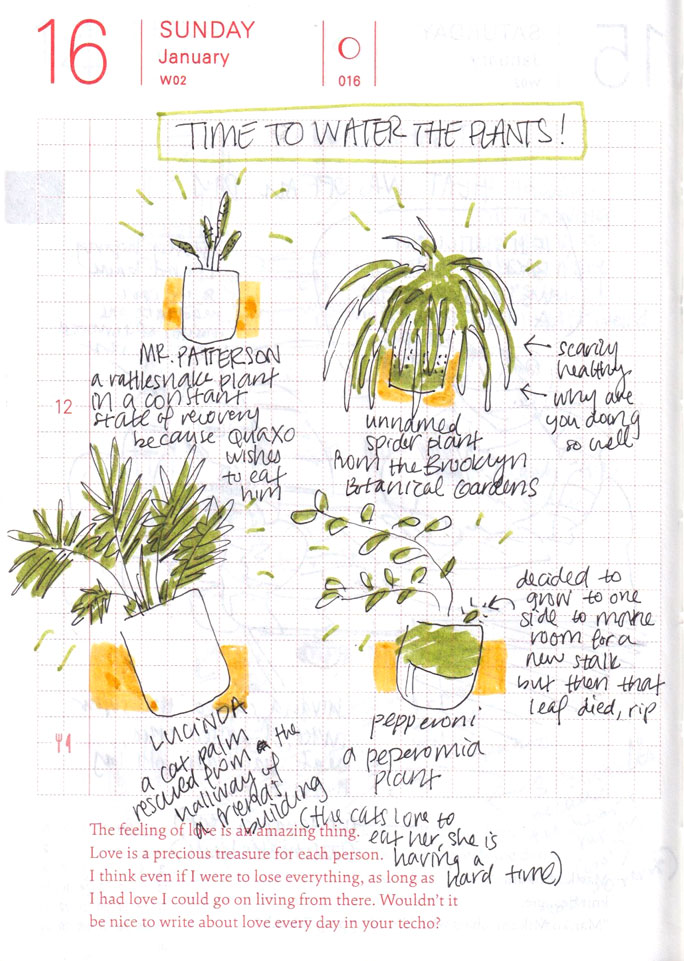 16
SUNDAY
January
W02
016
TIME TO WATER THE PLANTS!
MR. PATTERSON
a rattlesnake plant
in a constant
state of recovery
because QUAXO
wishes
to eat
him
← scarily
healthy
← why are
you doing
so well
12
unnamed
spider plant
from the Brooklyn
Botanical Gardens
decided to
grow to one
side to make
room for a
new stalk
but then that
leaf died, rip
LUCINDA
a cat palm
rescued from the
hallway of
a friend's
building
(the cats love to
eat her, she is
having a
hard time)
pepperoni
a peperomia
plant
The feeling of love is an amazing thing.
Love is a precious treasure for each person.
I think even if I were to lose everything, as long as
I had love I could go on living from there. Wouldn't it
be nice to write about love every day in your techo?